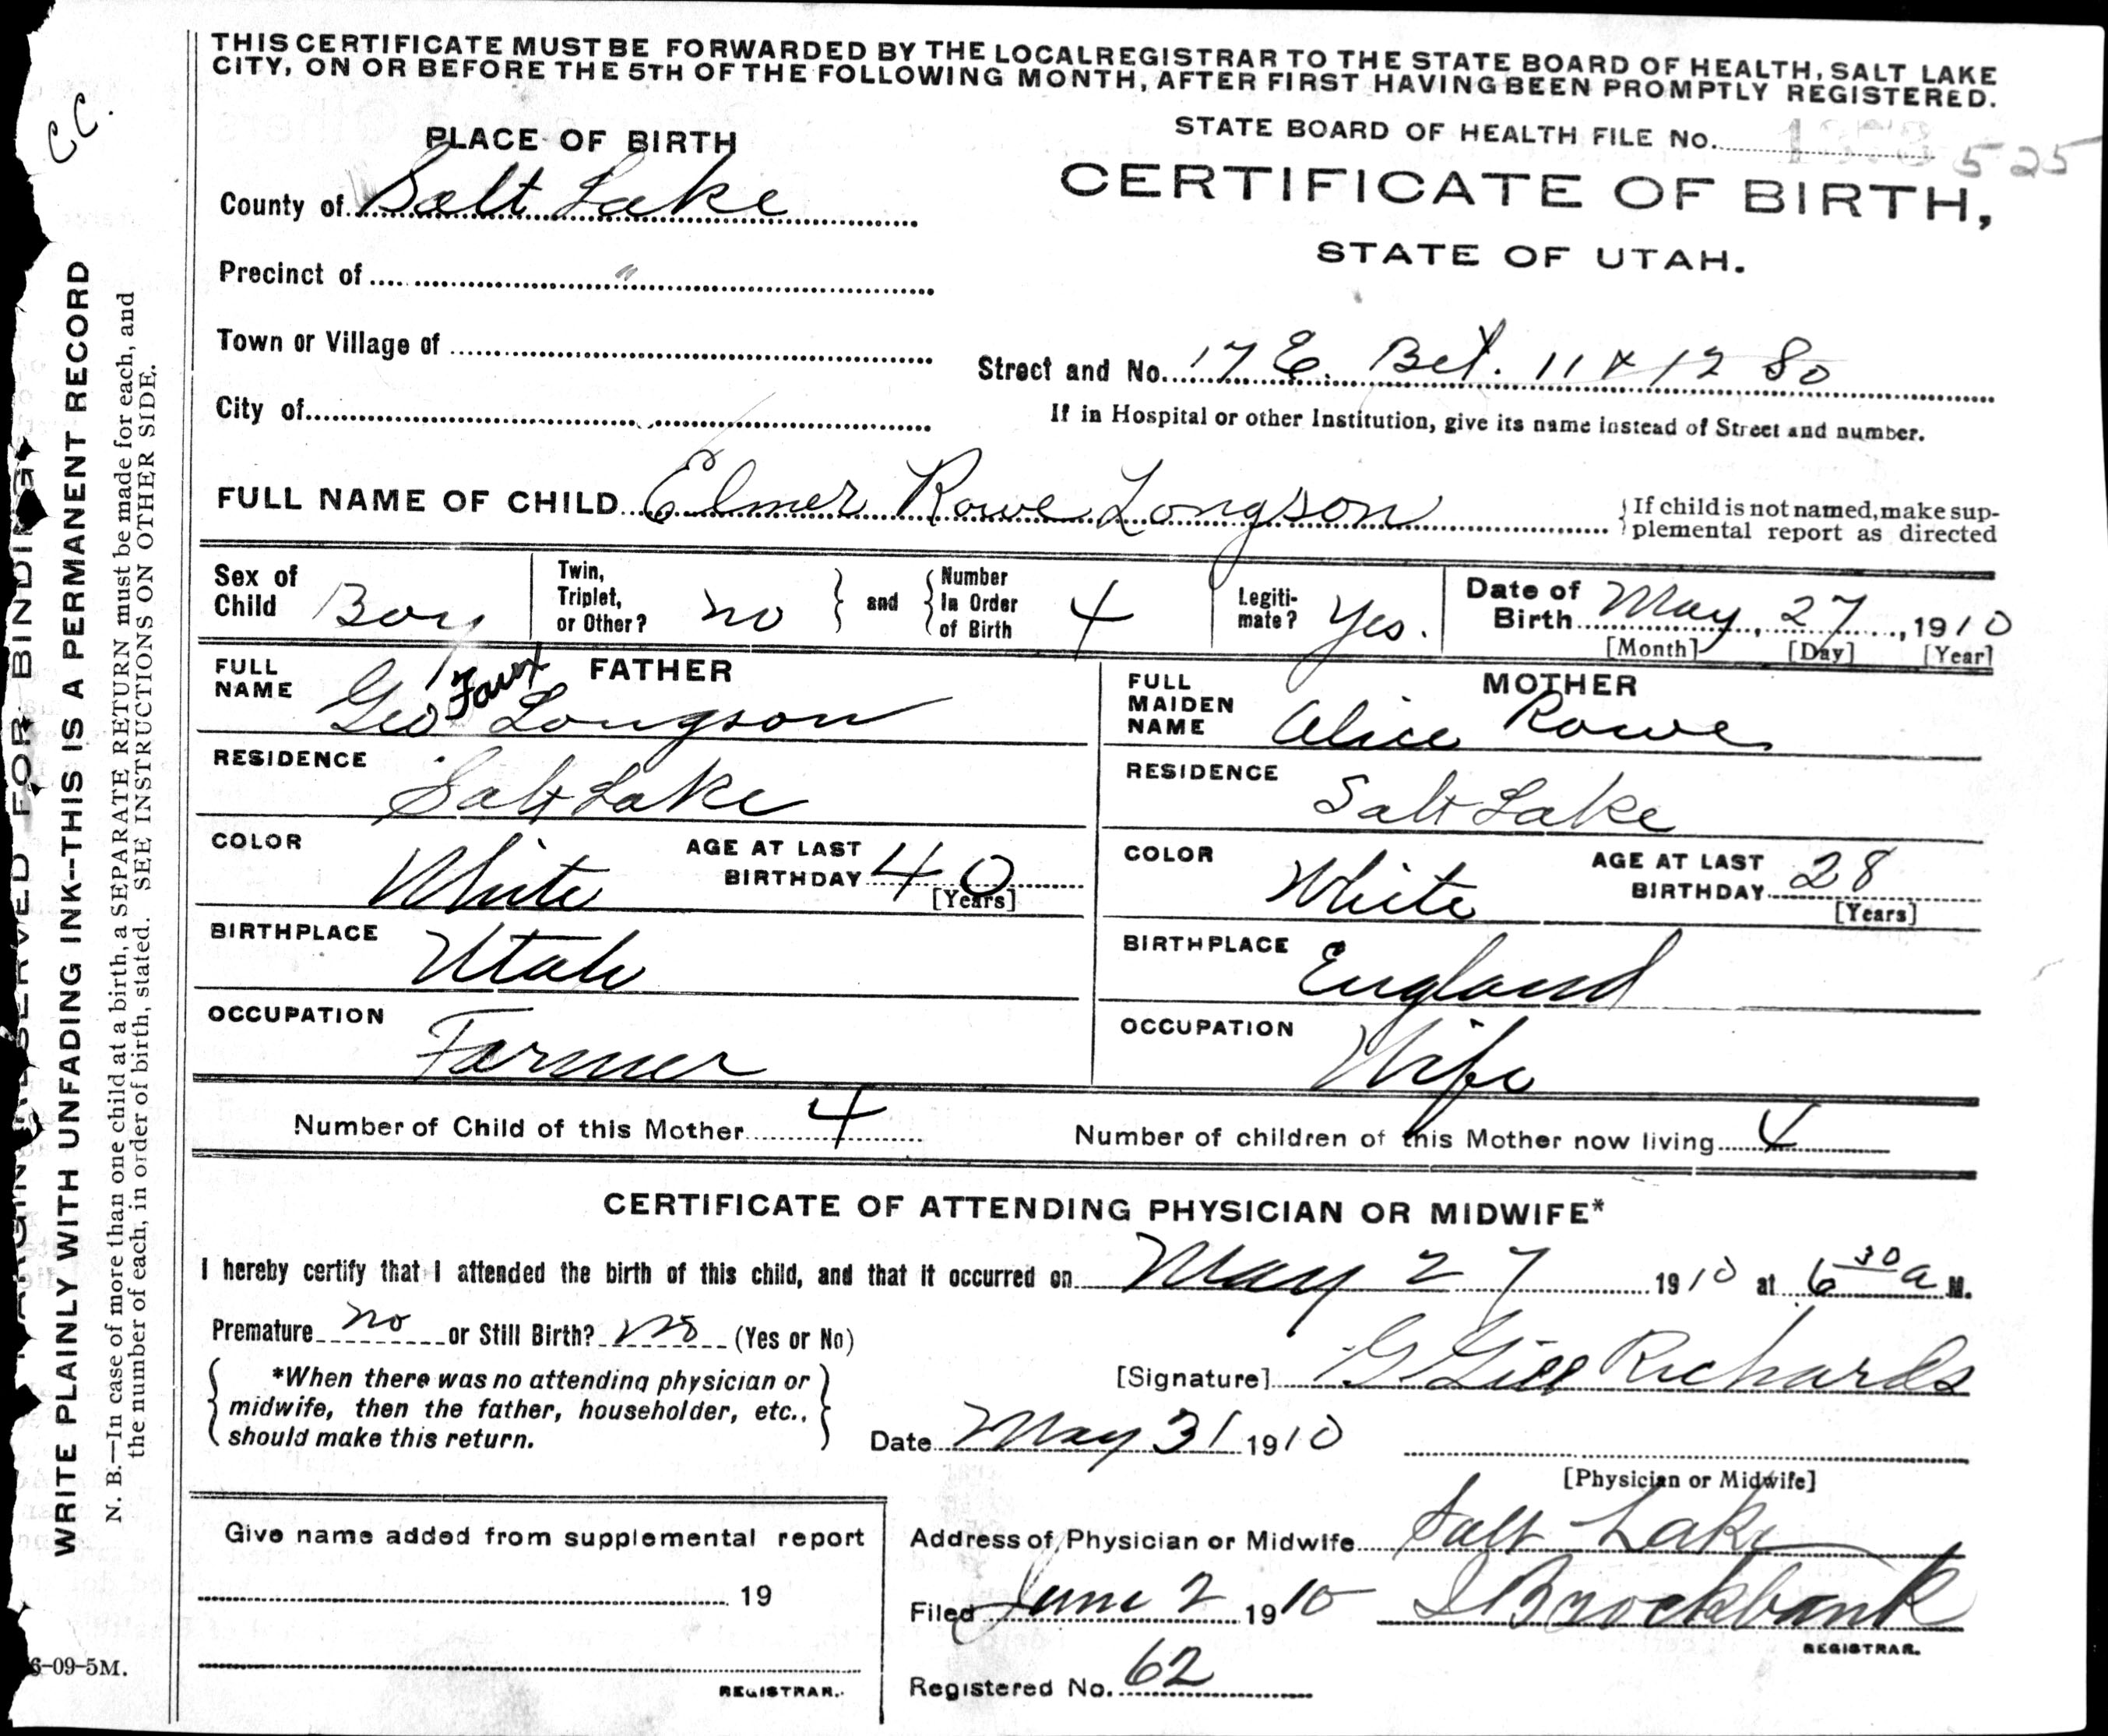 THIS CERTIFICATE MUST BE FORWARDED BY THE LOCAL REGISTRAR TO THE STATE BOARD OF HEALTH, SALT LAKE
CITY, ON OR BEFORE THE 5TH OF THE FOLLOWING MONTH, AFTER FIRST HAVING BEEN PROMPTLY REGISTERED.
C.C.
STATE BOARD OF HEALTH FILE No. 525
PLACE OF BIRTH
CERTIFICATE OF BIRTH,
STATE OF UTAH.
County of Salt Lake
Precinct of "
Town or Village of
Street and No. 17 E. Bet. 11 & 12 So
City of
If in Hospital or other Institution, give its name instead of Street and number.
FULL NAME OF CHILD Elmer Rowe Longson
{If child is not named, make sup-
plemental report as directed
Sex of Child Boy
Twin, Triplet, or Other? no } and { Number In Order of Birth 4
Legiti-mate? Yes.
Date of Birth May, 27, 1910
[Month] [Day] [Year]
FATHER
FULL NAME Geo Longson
RESIDENCE Salt Lake
COLOR White AGE AT LAST BIRTHDAY 40
[Years]
BIRTHPLACE Utah
OCCUPATION Farmer
MOTHER
FULL MAIDEN NAME Alice Rowe
RESIDENCE Salt Lake
COLOR White AGE AT LAST BIRTHDAY 28
[Years]
BIRTHPLACE England
OCCUPATION Wife
Number of Child of this Mother 4 Number of children of this Mother now living 4
CERTIFICATE OF ATTENDING PHYSICIAN OR MIDWIFE*
I hereby certify that I attended the birth of this child, and that it occurred on May 27 1910 at 6 30 a M.
Premature no or Still Birth? no (Yes or No)
{ *When there was no attending physician or
midwife, then the father, householder, etc.,
should make this return. }
[Signature] G Gill Richards
Date May 31 1910
[Physician or Midwife]
Give name added from supplemental report
19
REGISTRAR.
Address of Physician or Midwife Salt Lake
Filed June 2 1910 Brockbank
REGISTRAR.
Registered No. 62
6-09-5M.
MARGIN RESERVED FOR BINDING
WRITE PLAINLY WITH UNFADING INK--THIS IS A PERMANENT RECORD
N. B.—In case of more than one child at a birth, a SEPARATE RETURN must be made for each, and
the number of each, in order of birth, stated. SEE INSTRUCTIONS ON OTHER SIDE.